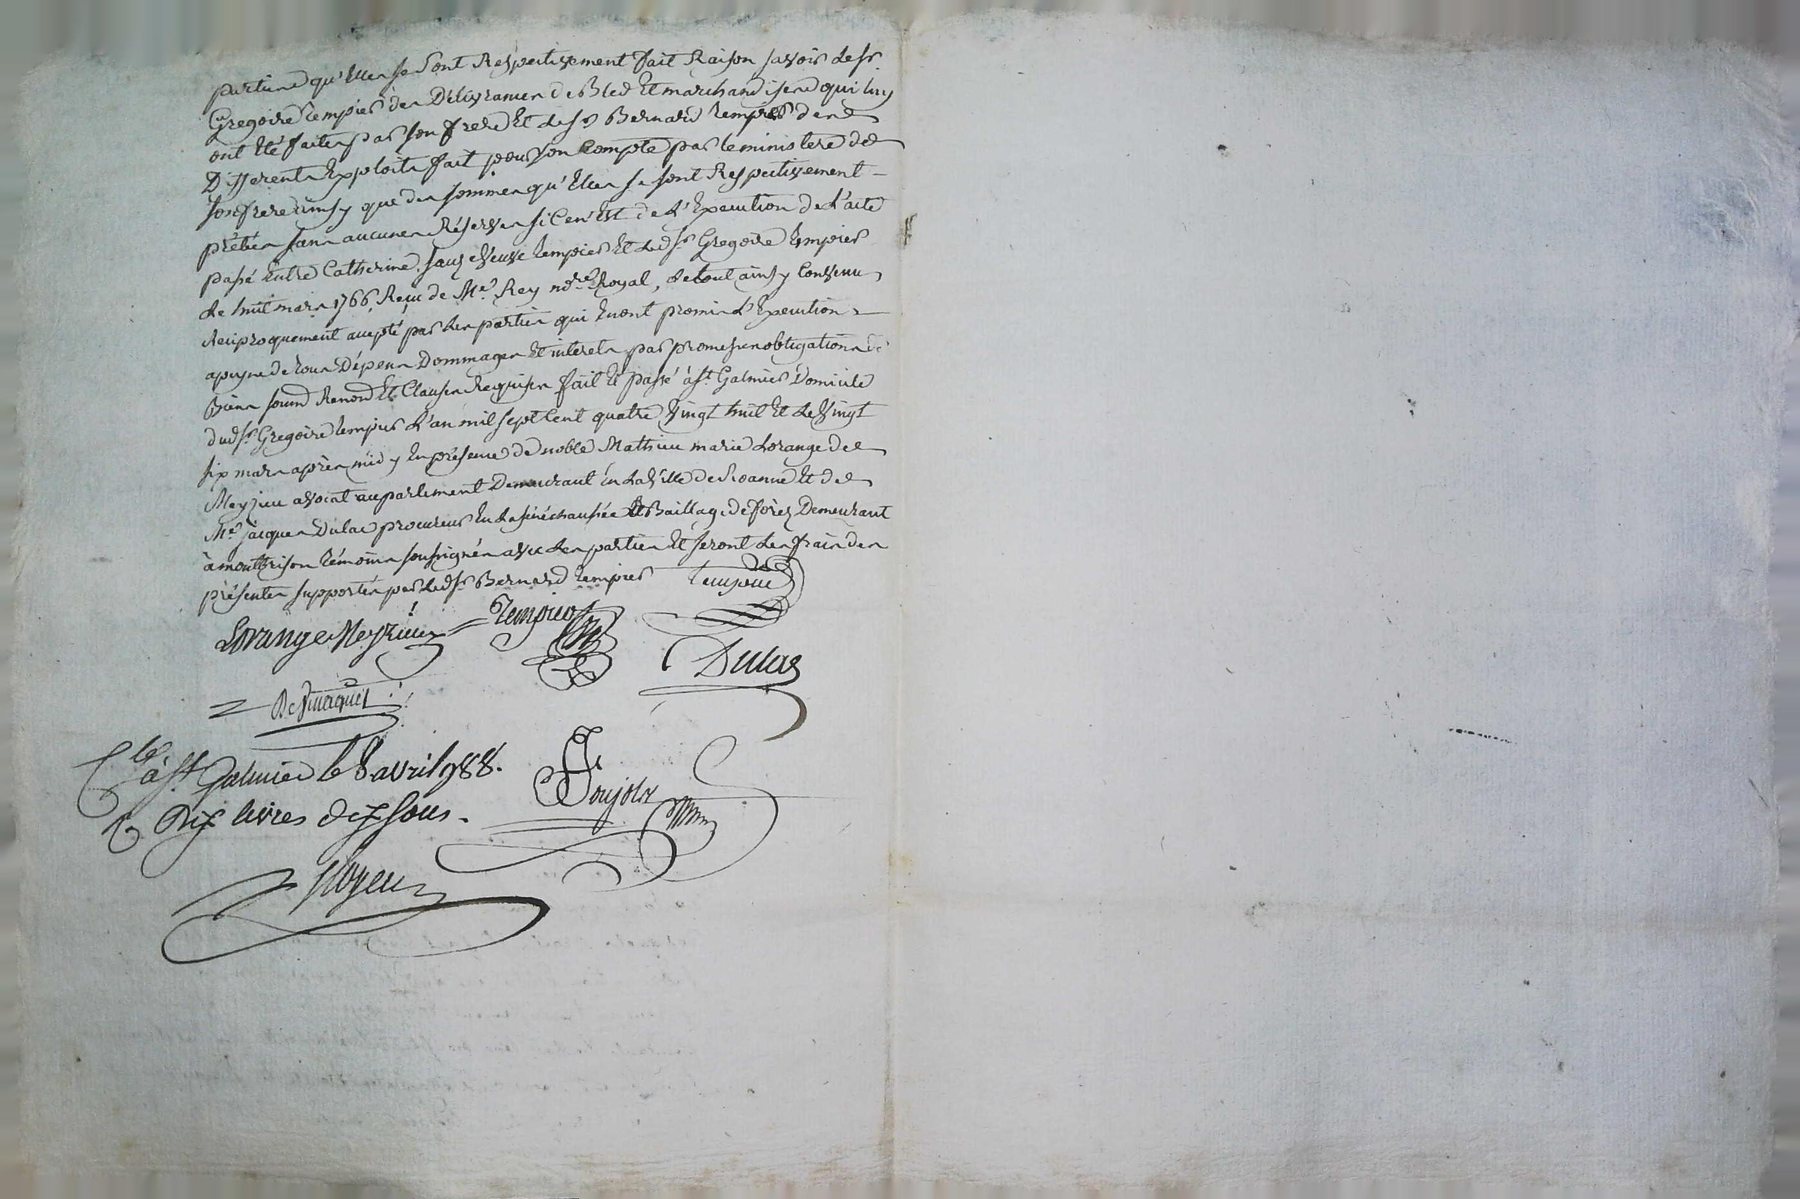 parties qu'elles se sont Respectivement fait Raison savoir le sr.
Gregoire tempier des Délivrances de Bled Et marchandises qui luy
ont Eté faites par son frere Et le sr Bernard tempier des
Differents Exploits fait pour son Compte par le ministere de
son frere ainsy que des sommes qu'Elles se sont Respectivement
prétés sans aucunes Réserves si Ce n'Est de L'Execution de L'acte
passé Entre Catherine veuve tempier Et led. sr Gregoire tempier
Le huit mars 1766 Reçu de Me Rey nore Royal, le tout ainsy Convenu
Reciproquement accepté par les parties qui En ont promis L'Execution
a peyne de tous Dépens Dommages Et interets par promesses obligations de
Biens soumd Renond Et Clauses Requises fait Et passé à st Galmier Domicile
dud. sr Gregoire tempier L'an mil sept Cent quatre vingt huit Et le vingt
six mars après midy En présence de noble Mathieu marie Lorange de
Meyzieu avocat au parlement Demeurant En la ville de Roanne Et de
Me jacques Dulac procureur En la sénéchaussée Et Baillage de forez Demeurant
à montbrison témoins soussignés avec les parties Et seront les frais des
présentes supportés par led. sr Bernard tempier tempier
Lorange Meyzieu tempier
Dulac
Clé à st. Galmier le 8 avril 988.
R dix livres dix sous.